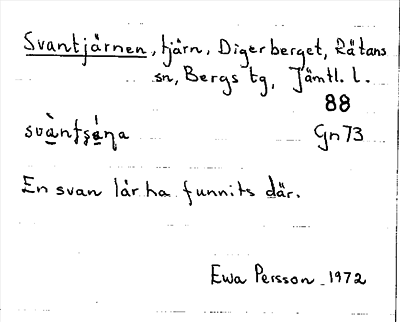 Svantjärnen, tjärn, Digerberget, Rätans
sn, Bergs tg, Jämtl. l.
88
Gn73
En svan lär ha funnits där.
Ewa Persson 1972